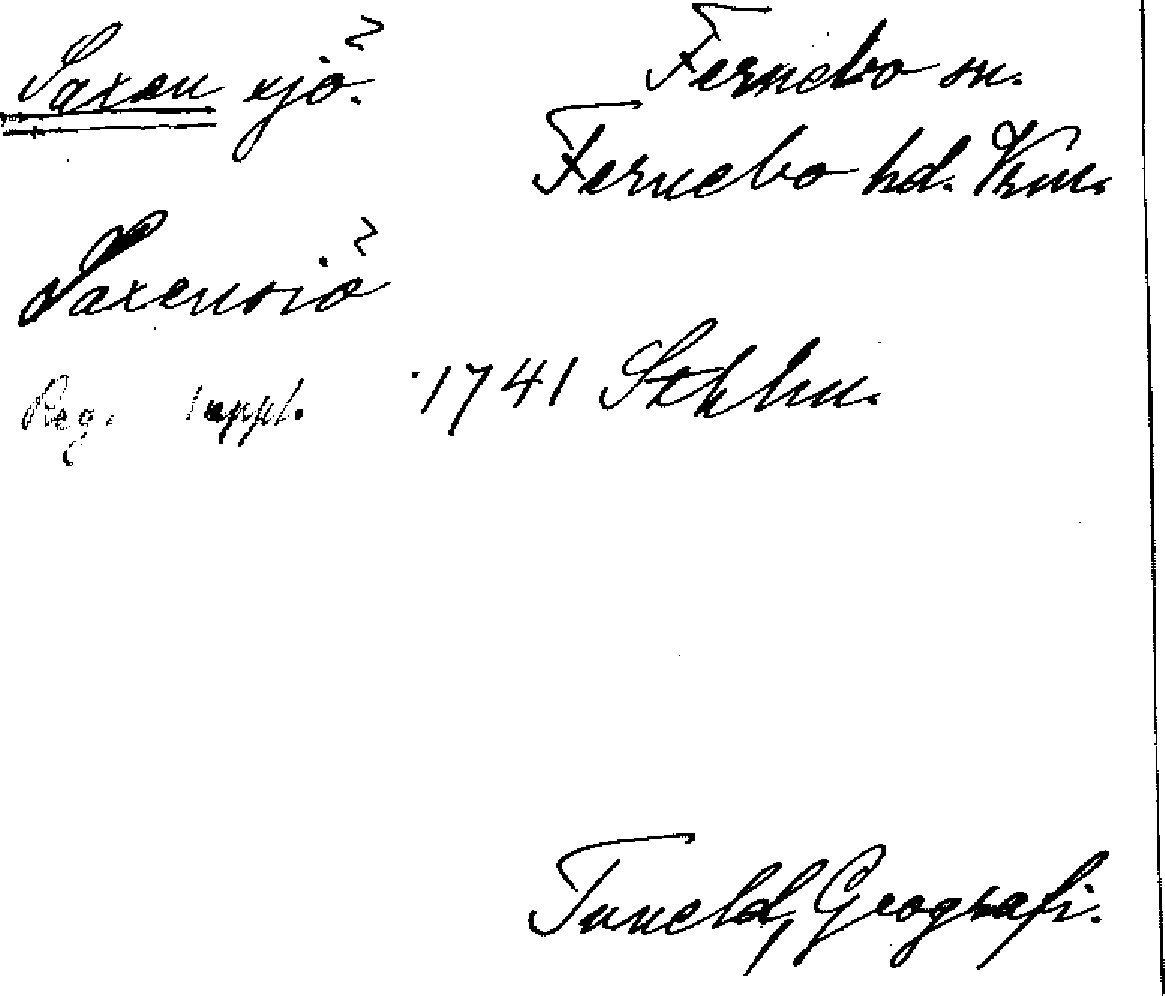 Saxen sjö.
Fernebo sn.
Fernebo hd. Vrml.
Saxensiö
Reg. suppl. 1741 Sthlm.
Tuneld, Geografi.